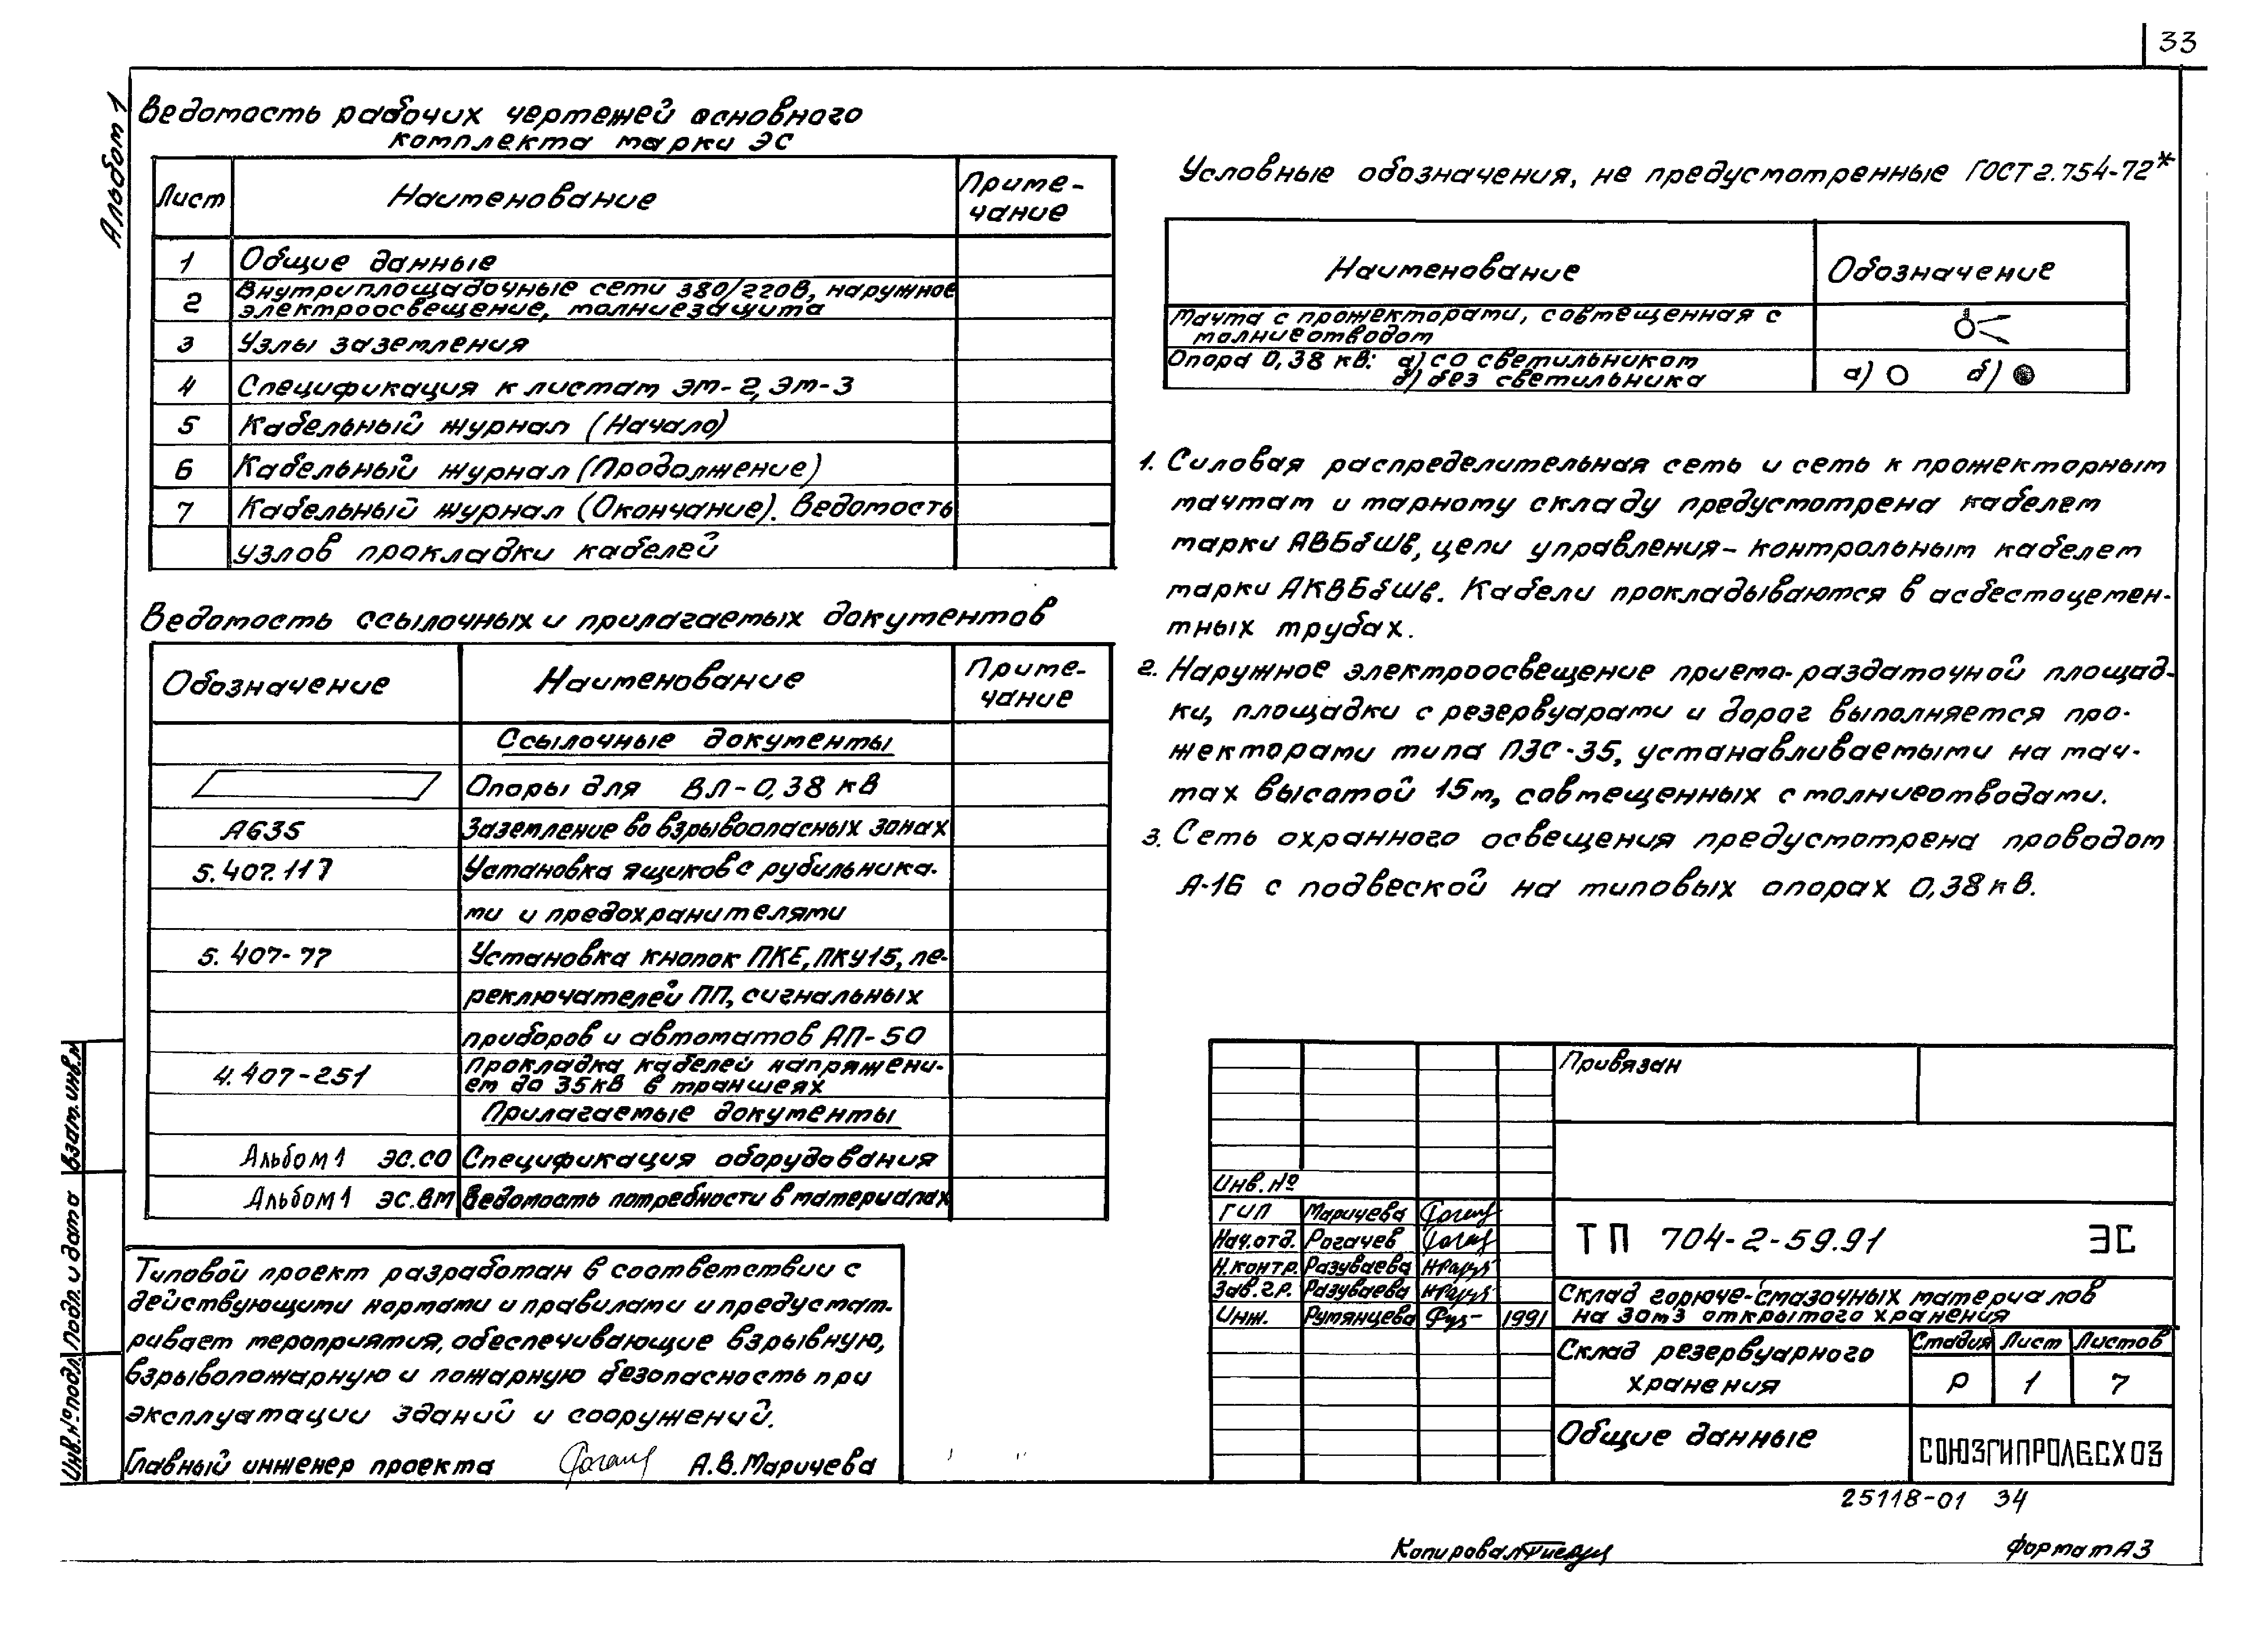 33
Альбом 1
Ведомость рабочих чертежей основного
комплекта марки ЭС
Лист Наименование Приме-
чание
1 Общие данные
2 Внутриплощадочные сети 380/220В, наружное
электроосвещение, молниезащита
3 Узлы заземления
4 Спецификация к листам ЭМ-2, ЭМ-3
5 Кабельный журнал (Начало)
6 Кабельный журнал (Продолжение)
7 Кабельный журнал (Окончание). Ведомость
узлов прокладки кабелей
Ведомость ссылочных и прилагаемых документов
Обозначение Наименование Приме-
чание
Ссылочные документы
Опоры для ВЛ-0,38 кВ
А635 Заземление во взрывоопасных зонах
5.407.117 Установка ящиков с рубильника-
ми и предохранителями
5.407-77 Установка кнопок ПКЕ, ПКУ15, пе-
реключателей ПП, сигнальных
приборов и автоматов АП-50
4.407-251 Прокладка кабелей напряжени-
ем до 35кВ в траншеях
Прилагаемые документы
Альбом 1 ЭС.СО Спецификация оборудования
Альбом 1 ЭС.ВМ Ведомость потребности в материалах
Типовой проект разработан в соответствии с
действующими нормами и правилами и предусмат-
ривает мероприятия, обеспечивающие взрывную,
взрывопожарную и пожарную безопасность при
эксплуатации зданий и сооружений.
Главный инженер проекта А.В.Маричева
Инв.№подл. Подп. и дата Взам.инв.№
Условные обозначения, не предусмотренные ГОСТ 2.754-72*
Наименование Обозначение
Мачта с прожекторами, совмещенная с
молниеотводом
Опора 0,38 кВ: а) со светильником
б) без светильника
а) б)
1. Силовая распределительная сеть и сеть к прожекторным
мачтам и тарному складу предусмотрена кабелем
марки АВБбШв, цепи управления - контрольным кабелем
марки АКВБбШв. Кабели прокладываются в асбестоцемен-
тных трубах.
2. Наружное электроосвещение приемо-раздаточной площад-
ки, площадки с резервуарами и дорог выполняется про-
жекторами типа ПЗС-35, устанавливаемыми на мач-
тах высотой 15м, совмещенных с молниеотводами.
3. Сеть охранного освещения предусмотрена проводом
А-16 с подвеской на типовых опорах 0,38кВ.
Привязан
Инв.№
ГИП Маричева
Нач.отд. Рогачев
Н.контр. Разуваева
Зав.гр. Разуваева
Инж. Румянцева 1991
ТП 704-2-59.91 ЭС
Склад горюче-смазочных материалов
на 30м3 открытого хранения
Склад резервуарного
хранения
Стадия Лист Листов
Р 1 7
Общие данные
СОЮЗГИПРОЛЕСХОЗ
25118-01 34
Копировал
Формат А3